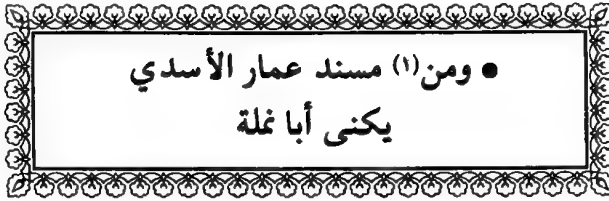 ● ومن(١) مسند عمار الأسدي
يكنى أبا نملة